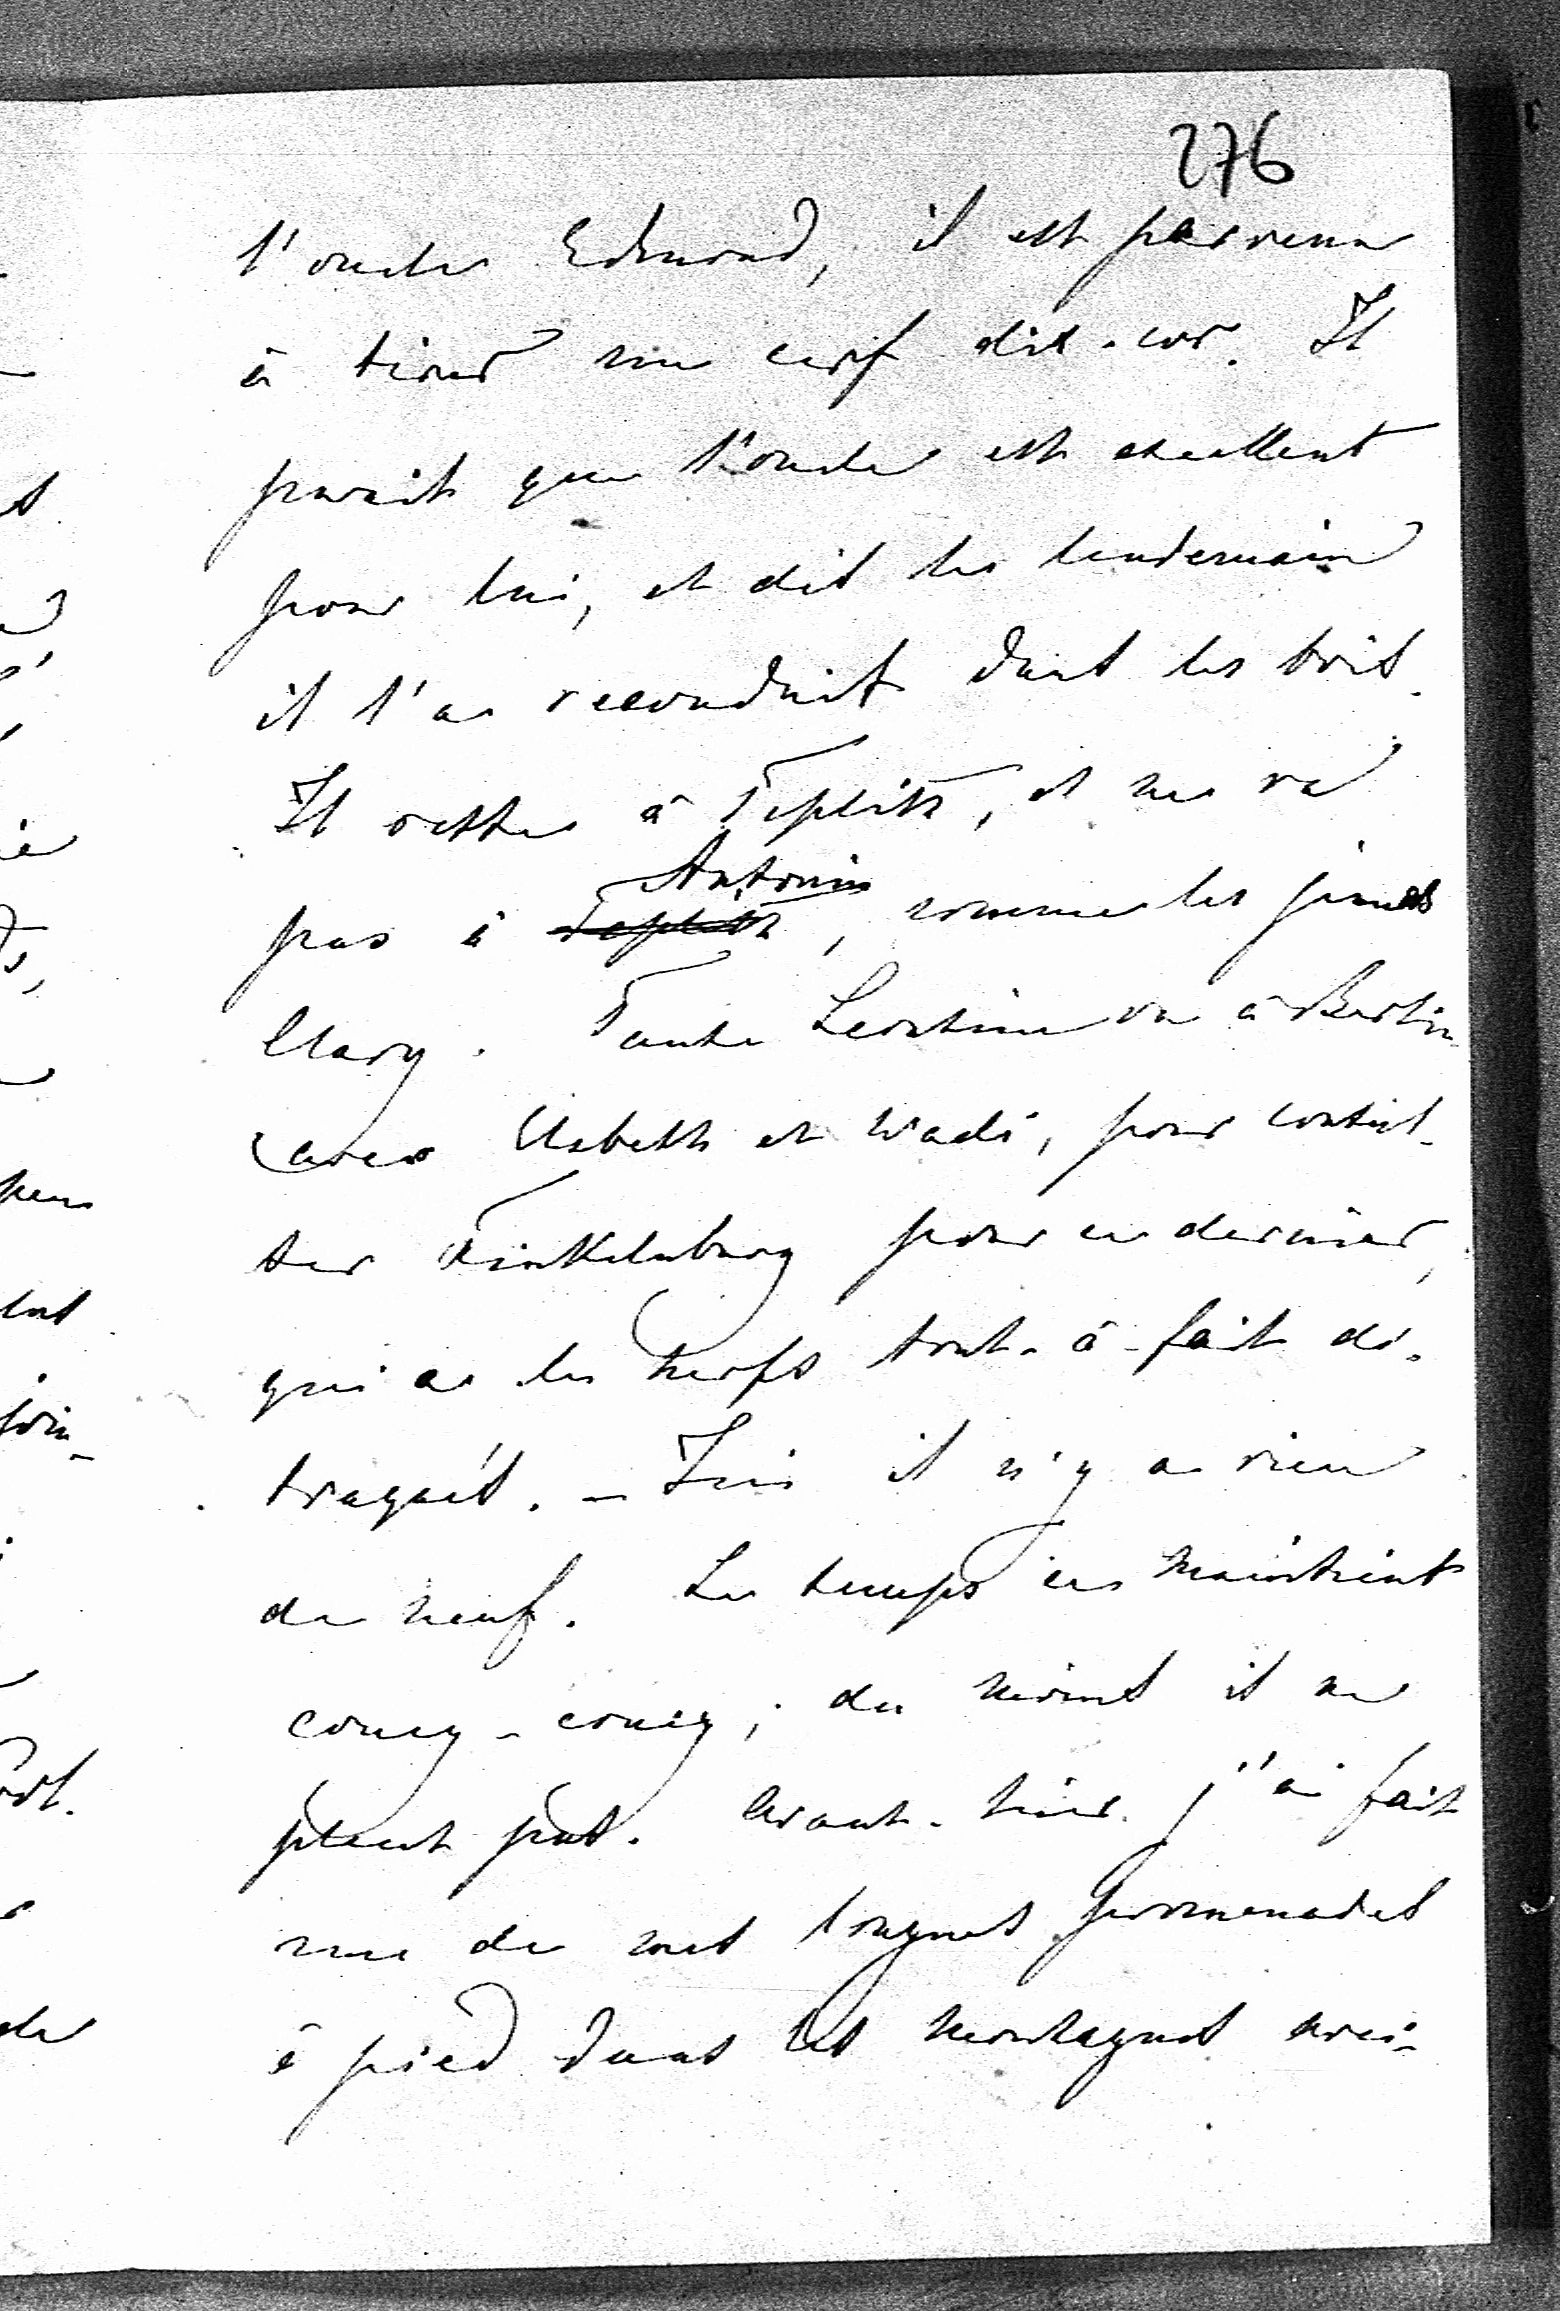 276
l'oncle Edmond, il est parvenu
à tirer un cerf dix-cor. Il
parait que l'oncle est excellent
pour lui, et dit le lendemain
il l'a reconduit dans les bois.
Il reste à Teplitz, et ne va
Antonin
pas à Teplitz, comme les jeunes
Clary. Tante Léontine va à Berlin
avec Elsbeth et Wadi, pour consul-
ter Finkelnburg pour ce dernier,
qui a les nerfs tout-à-fait dé-
traqués. – Ici il n'y a rien
de neuf. Le temps se maintient
coucy-coucy; du moins il ne
pleut pas. Avant-hier j'ai fait
une de mes longues promenades
à pied dans les montagnes avoi-